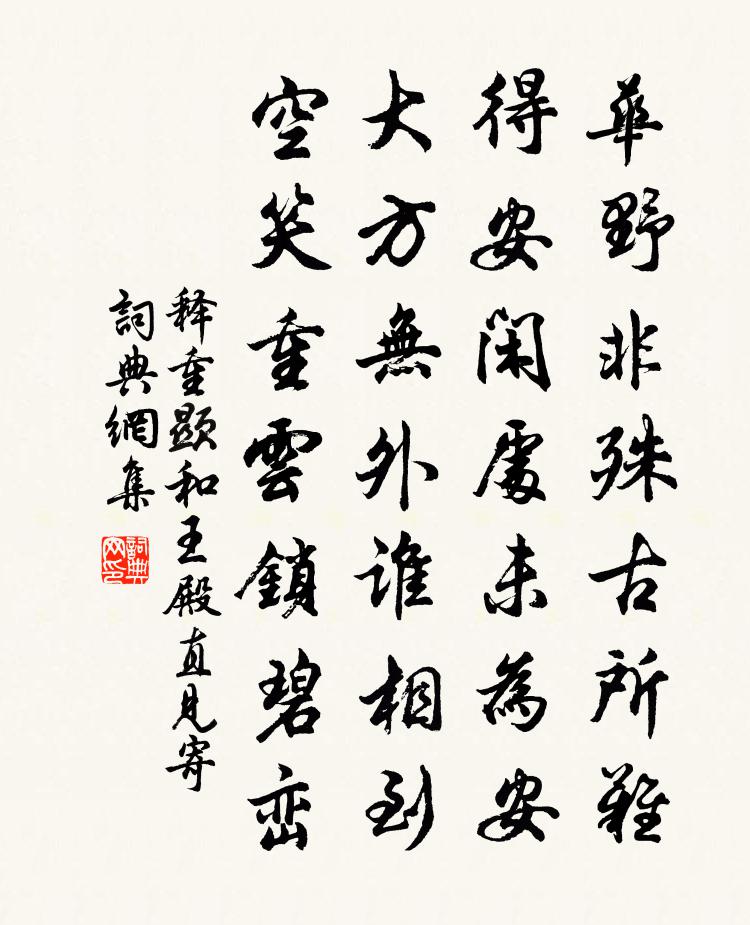 華野非殊古所難
得安閑處未為安
大方無外誰相到
空笑重雲鎖碧巒
释重顯和王殿直見寄
詞典網集
詞典網印